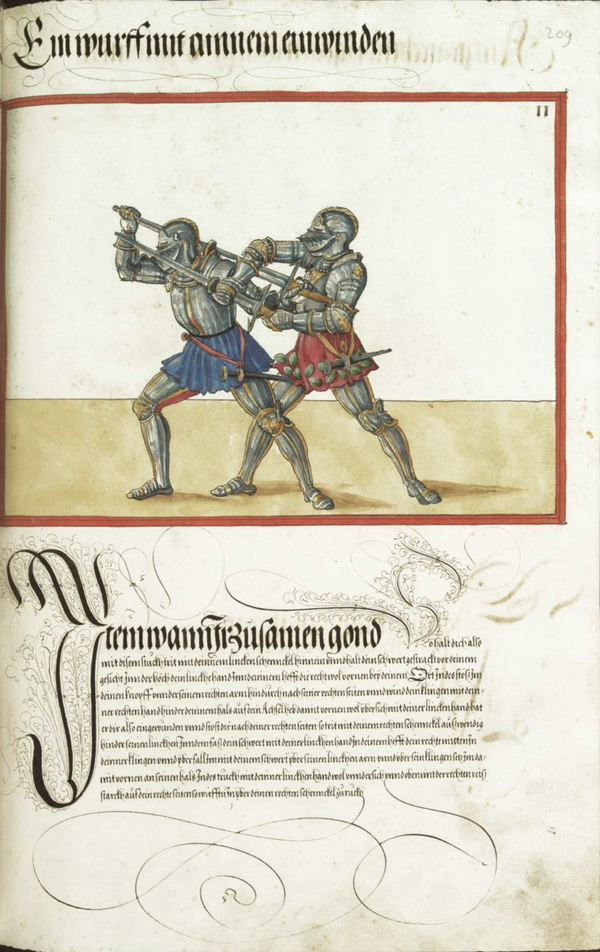 Ein wurff mit ainnem einwinden
209
11
Item wann Ir zusamen gond So halt dich also
mit disem stuckh trit mit deinnem lincken schennckel hinnen vnnd halt dein schwert gestrackt vor deinem
gesicht Inn der hoch dein linckhe hand Inn deinnem hefft die recht wol vornen bei deinem Ort Indes stos Im
deinen knopff vnnder seinen rechten arm hindurch nach seiner rechten seiten vnnd wind dein klingen mit dein
ner rechten hand hinder deinen hals auf dein Achsel heb damit vornen wol vbersich mit deiner lincken hand hat
er dir also eingewunden vnnd stost dir nach deiner rechten seiten so trit mit deinem rechten schennckel auswendig
hinder seinen lincken Inn dem fass dein schwert mit deiner linckhen hand In deinem hefft dein recht mitten In
deinner klingen vnnd vberfall Im mit deinem schwert vber seinen linckhen arm vnnd vber sein klingen setz Im da
mit vornen an seinen hals Indes truckh mit deinner linckhen hand wol vndersich vnnd oben mit der rechten reis
starckh auf dein rechte seiten so wirffstu In vber deinen rechten schennckel zuruckh